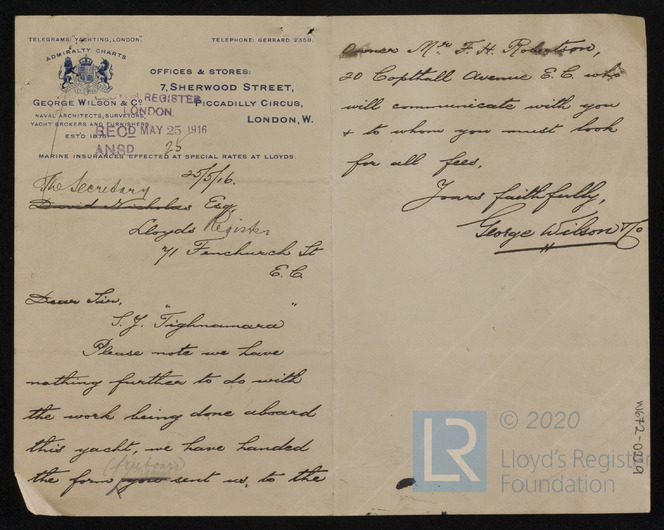 TELEGRAMS: "YACHTING, LONDON."
TELEPHONE: GERRARD 2358.
ADMIRALTY CHARTS
OFFICES & STORES:
7, SHERWOOD STREET,
PICCADILLY CIRCUS,
LONDON, W.
GEORGE WILSON & Co
NAVAL ARCHITECTS, SURVEYORS,
YACHT BROKERS AND FURNISHERS
ESTD 1876
REGISTER
LONDON
RECD MAY 25 1916
ANSD 25
MARINE INSURANCES EFFECTED AT SPECIAL RATES AT LLOYDS.
25/5/16.
The Secretary
David Nicholas Esq
Lloyds Register
71 Fenchurch St
E.C.
Dear Sir,
S.Y. "Tighnamara"
Please note we have
nothing further to do with
the work being done aboard
this yacht, we have handed
the form you sent us, to the
owner Mr F. H. Robertson,
20 Copthall Avenue E.C. who
will communicate with you
& to whom you must look
for all fees.
Yours faithfully,
George Wilson & Co
W672-0229
LR
© 2020
Lloyd's Register
Foundation